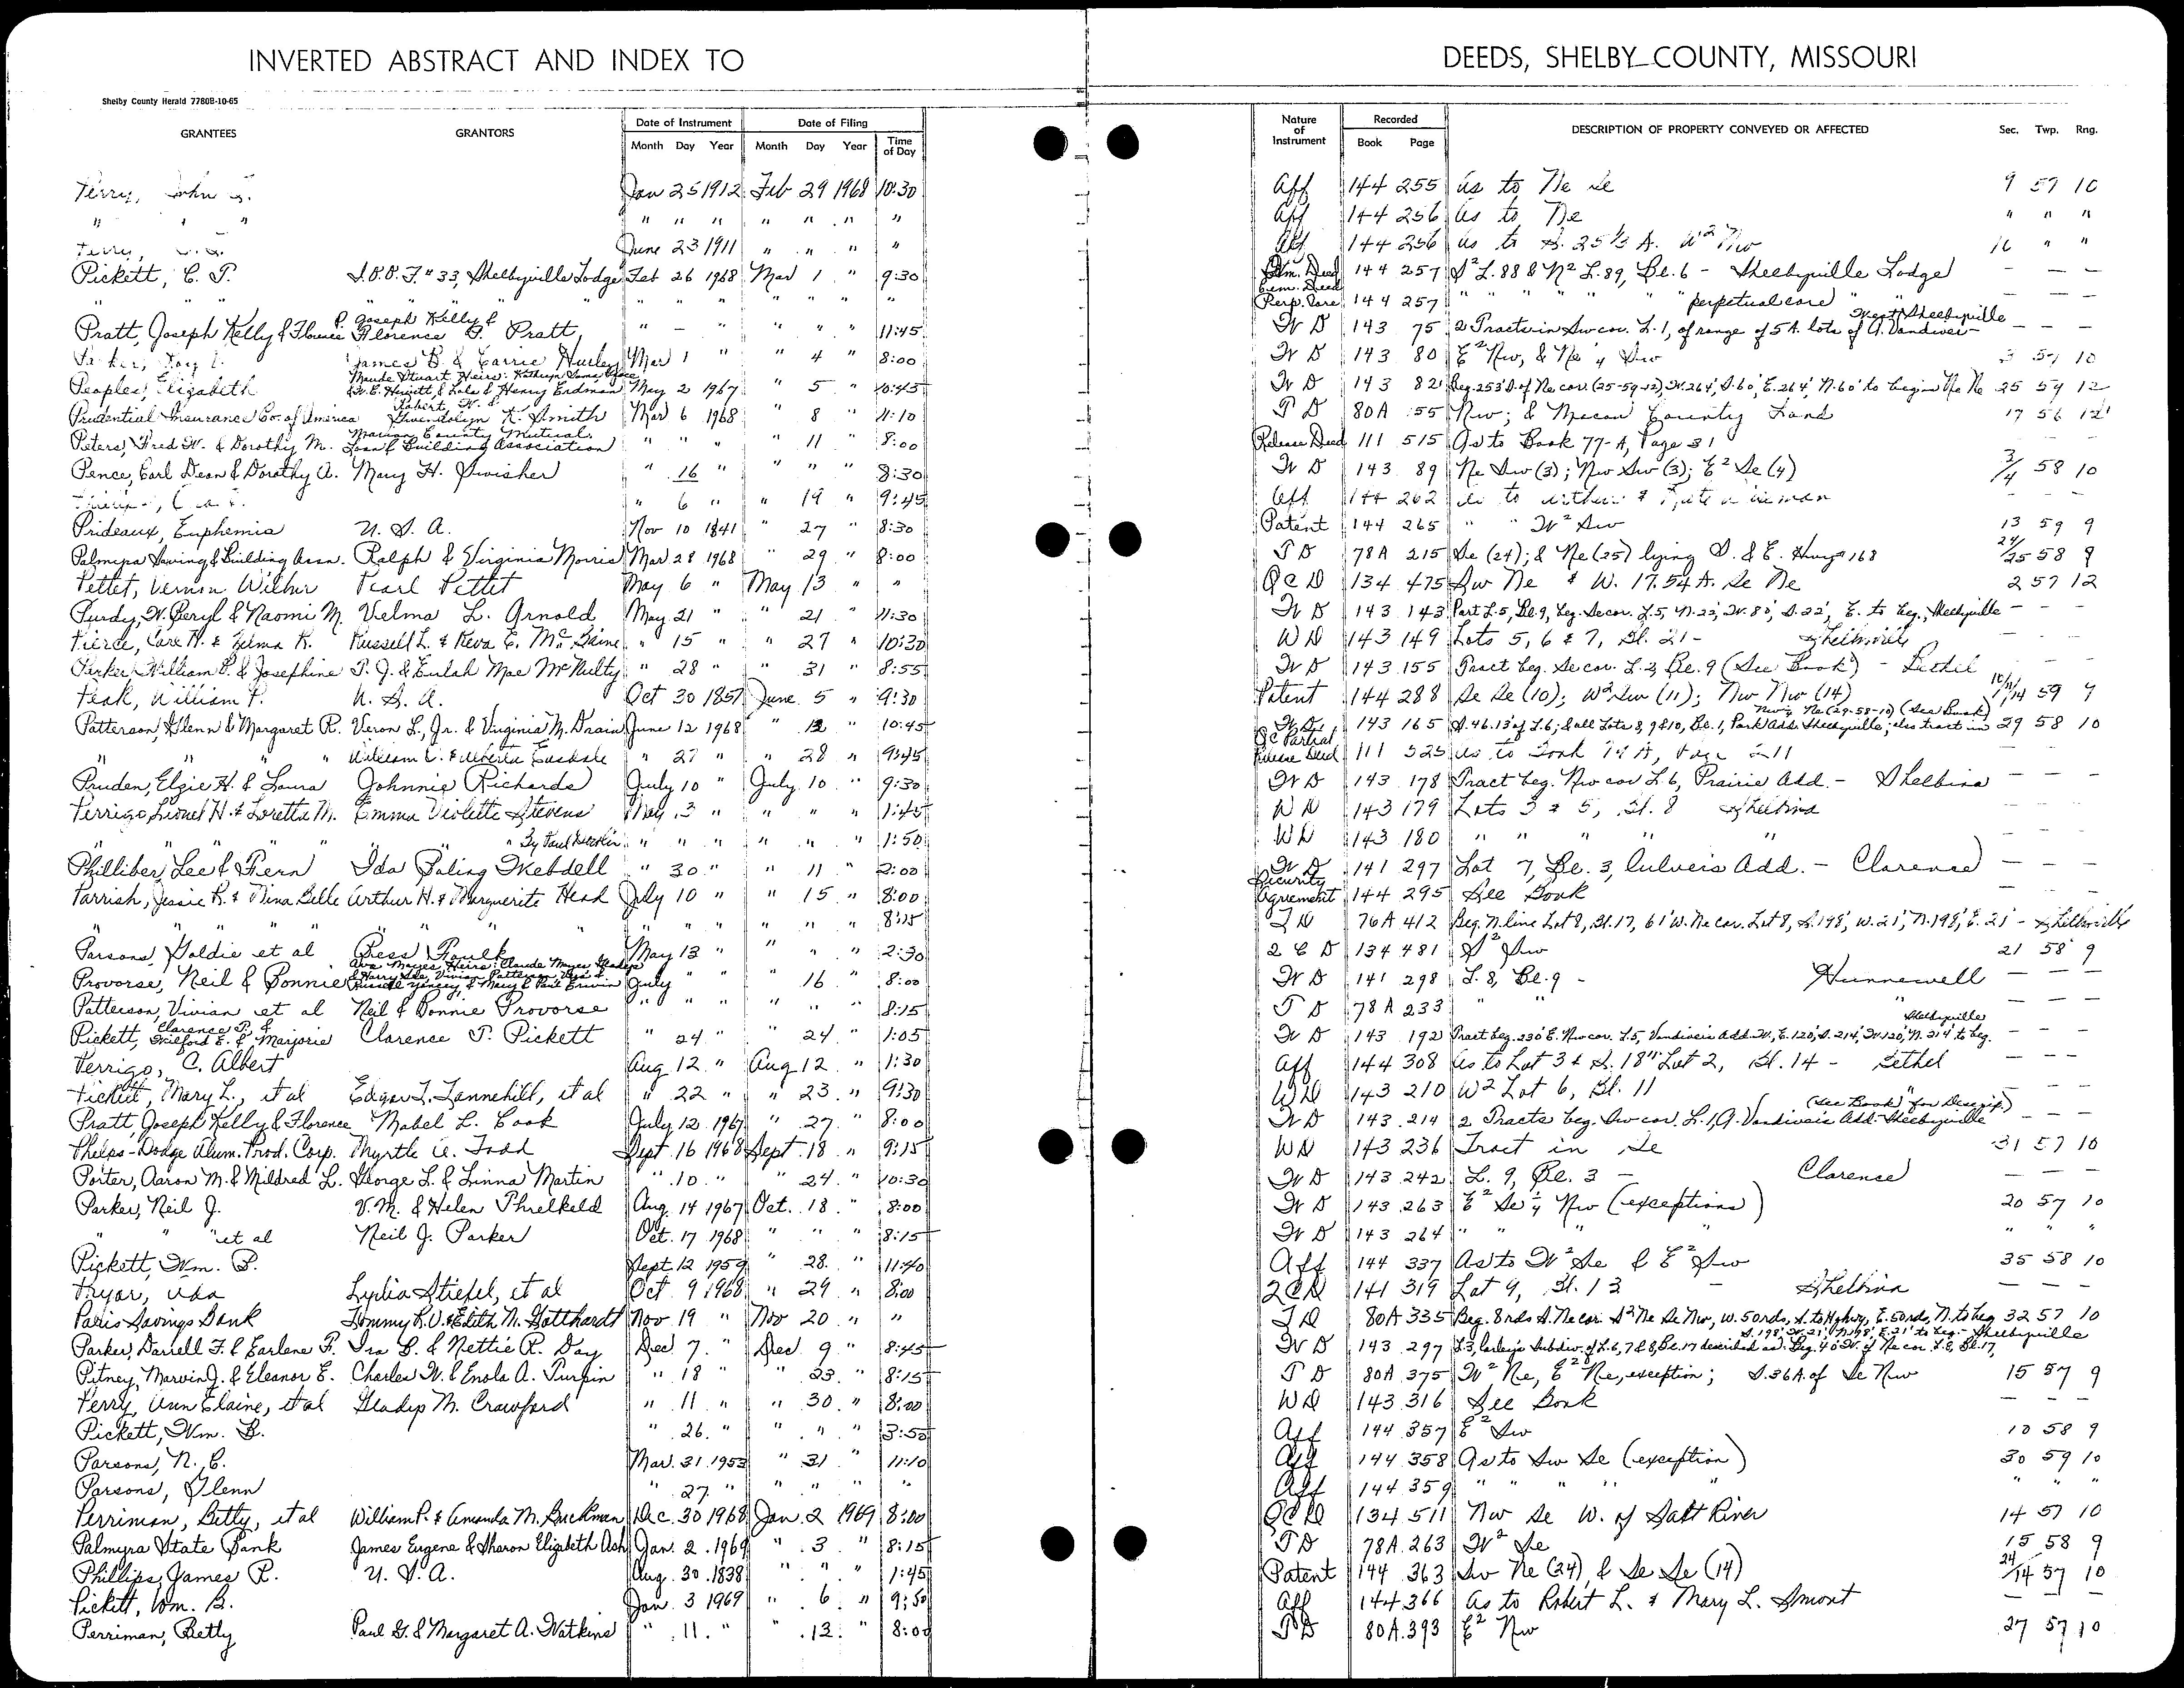 INVERTED ABSTRACT AND INDEX TO DEEDS, SHELBY COUNTY, MISSOURI
Shelby County Herald 7780B-10-65
GRANTEES GRANTORS Date of Instrument Date of Filing Nature of Instrument Recorded DESCRIPTION OF PROPERTY CONVEYED OR AFFECTED Sec. Twp. Rng.
Month Day Year Month Day Year Time of Day Book Page
Perry, John Jan 25 1912 Feb 29 1968 10:30 Aff 144 255 as to Ne Se 9 57 10
" " " " " " " " " " Aff 144 256 as to Ne " " "
Perry, June 23 1911 " " " " Aff 144 256 as to S. 25 1/3 A. W2 Nw 16 " "
Pickett, C. P. I.O.O.F. # 33, Shelbyville Lodge Feb 26 1968 Mar 1 " 9:30 Cem. Deed 144 257 S2 L. 88 & N2 L. 89, Bl. 6 - Shelbyville Lodge — — —
" " " " " " " " " " Perp. Care 144 257 " " " " " perpetual care " " — — —
Pratt, Joseph Kelly & Florence P. Joseph Kelly & Florence Pratt, " — " " " " 11:45 W D 143 75 2 Tracts in Sw cor. L. 1, of range of 5 A. lots of A. Vandiver West Shelbyville — — —
James B. & Carrie Hurley Mar 1 " " 4 " 8:00 W D 143 80 E2 Nw, & Ne 4 Sw 3 57 10
Peoples, Elizabeth Maude Stuart Heirs: May 2 1967 " 5 " 10:45 W D 143 82 Beg. 253' S. of Ne cor. (25-59-12), W. 264', S. 60', E. 264', N. 60' to begin Ne Ne 25 59 12
Prudential Insurance Co. of America Robert W. & Gwendolyn K. Smith Mar 6 1968 " 8 " 11:10 T D 80A 55 Nw; & Macon County Land 17 56 12
Peters, Fred W. & Dorothy M. Marion County Mutual Loan & Building Association " " " " 11 " 8:00 Release Deed 111 515 As to Book 77-A, Page 31 — — —
Pence, Carl Dean & Dorothy A. Mary H. Swisher " 16 " " " " 8:30 W D 143 89 Ne Sw (3); Nw Sw (3); E2 Se (4) 3/4 58 10
" 6 " " 19 " 9:45 Aff 144 262 as to — — —
Prideaux, Euphemia U. S. A. Nov 10 1841 " 27 " 8:30 Patent 144 265 " " W2 Sw 13 59 9
Palmyra Saving & Building Assn. Ralph & Virginia Morris Mar 28 1968 " 29 " 8:00 T D 78A 215 Se (24); & Ne (25) lying S. & E. Hwy 168 24/25 58 9
Pettet, Vernon Wilbur Pearl Pettet May 6 " May 13 " " Q C D 134 475 Sw Ne & W. 17.54 A. Se Ne 2 57 12
Purdy, W. Beryl & Naomi M. Velma L. Arnold May 21 " " 21 " 11:30 W D 143 143 Part L. 5, Bl. 9, beg. Se cor. L. 5, N. 22', W. 80', S. 22', E. to beg., Shelbyville — — —
Pierce, Carl H. & Zelma K. Russell L. & Reva E. McBaine " 15 " " 27 " 10:30 W D 143 149 Lots 5, 6 & 7, Bl. 21 - Shelbyville — — —
Parker, William P. & Josephine P. J. & Eulah Mae McNulty " 28 " " 31 " 8:55 W D 143 155 Tract beg. Se cor. L. 2, Bl. 9 (See Book) - Bethel — — —
Peak, William P. U. S. A. Oct 30 1857 June 5 " 9:30 Patent 144 288 Se Se (10); W2 Sw (11); Nw Nw (14) 10/11/14 59 9
Patterson, Glenn & Margaret R. Veron L., Jr. & Virginia M. Drain June 12 1968 " 12 " 10:45 W D 143 165 S. 46.13' of L. 6; & all Lots 8, 9 & 10, Bl. 1, Park Add. Shelbyville; also tract in Nw 4 Ne (29-58-10) (See Book) 29 58 10
" " " " " 27 " " 28 " 9:45 QC Partial Release Deed 111 525 as to Book 74 A, Page 211
Pruden, Elgie H. & Laura Johnnie Richards July 10 " July 10 " 9:30 W D 143 178 Tract beg. Nw cor L. 6, Prairie Add. - Shelbina — — —
Perrigo, Lionel H. & Loretta M. Emma Violette Stevens May 3 " " " " 1:45 W D 143 179 Lots 3 & 5, Bl. 8 Shelbina — — —
" " " " By Paul " " " " " " 1:50 W D 143 180 " " " " " — — —
Philliber, Lee & Fern Ida Poling Webdell " 30 " " 11 " 2:00 W D 141 297 Lot 7, Bl. 3, Culvers Add. - Clarence — — —
Parrish, Jessie R. & Nina Belle Arthur H. & Marguerite Head July 10 " " 15 " 8:00 Security Agreement 144 295 See Book — — —
" " " " " " " " " " " 8:15 T D 76A 412 Beg. N. line Lot 8, Bl. 17, 61' W. Ne cor. Lot 8, S. 198', W. 21', N. 198', E. 21' - Shelbyville
Parsons, Goldie et al Bess Foulk May 13 " " " " 2:30 Q C D 134 481 S2 Sw 21 58 9
Provorse, Neil & Bonnie Ava Mayes Heirs: Claude Mayes, July " " 16 " 8:00 W D 141 298 L. 8, Bl. 9 - Hunnewell — — —
Patterson, Vivian et al Neil & Bonnie Provorse " " " " " " 8:15 T D 78A 233 " " " — — —
Pickett, Clarence P. & Guilford E. & Marjorie Clarence P. Pickett " 24 " " 24 " 1:05 W D 143 192 Tract beg. 230' E. Nw cor. L. 5, Vandivers Add. W., E. 120', S. 214', W. 120', N. 214' to beg. Shelbyville — — —
Perrigo, C. Albert Aug 12 " Aug 12 " 1:30 Aff 144 308 as to Lot 3 & S. 18" Lot 2, Bl. 14 - Bethel — — —
Pickett, Mary L., et al Edgar L. Tannehill, et al " 22 " " 23 " 9:30 W D 143 210 W2 Lot 6, Bl. 11 " — — —
Pratt, Joseph Kelly & Florence Mabel L. Cook July 12 1967 " 27 " 8:00 W D 143 214 2 Tracts beg. Sw cor. L. 1, A. Vandivers Add. Shelbyville (See Book) for Descrip.) — — —
Phelps-Dodge Alum. Prod. Corp. Myrtle A. Todd Sept 16 1968 Sept 18 " 9:15 W D 143 236 Tract in Se 31 57 10
Porter, Aaron M. & Mildred L. George L. & Linna Martin " 10 " " 24 " 10:30 W D 143 242 L. 9, Bl. 3 - Clarence — — —
Parker, Neil J. V. M. & Helen Threlkeld Aug. 14 1967 Oct. 18 " 8:00 W D 143 263 E2 Se 4 Nw (exceptions) 20 57 10
" " " et al Neil J. Parker Oct. 17 1968 " " " 8:15 W D 143 264 " " " " " " "
Pickett, Wm. B. Sept 12 1959 " 28 " 11:40 Aff 144 337 As to W2 Se & E2 Sw 35 58 10
Pryor, Ada Lydia Stiefel, et al Oct 9 1968 " 29 " 8:00 QCD 141 319 Lot 9, Bl. 13 - Shelbina — — —
Paris Savings Bank Tommy R. V. & Edith N. Gotthardt Nov 19 " Nov 20 " " T D 80A 335 Beg. 8 rds S. Ne cor. S2 Ne Se Nw, W. 50 rds, S. to Hghwy, E. 50 rds, N. to beg 32 57 10
Parker, Darrell F. & Earlene F. Ira B. & Nettie R. Day Dec 7 " Dec. 9 " 8:45 W D 143 297 L. 3, Subdiv. of L. 6, 7 & 8, Bl. 17 described as: Beg. 40' W. of Ne cor. L. 8, Bl. 17, S. 198', W. 21', N. 198', E. 21' to beg. - Shelbyville
Pitney, Marvin J. & Eleanor E. Charles W. & Enola A. Turpin " 18 " " 23 " 8:15 T D 80A 375 W2 Ne, E2 Ne, exception; S. 36 A. of Se Nw 15 57 9
Perry, Ann Elaine, et al Gladys M. Crawford " 11 " " 30 " 8:00 W D 143 316 See Book — — —
Pickett, Wm. B. " 26 " " " " 3:50 Aff 144 357 E2 Sw 10 58 9
Parsons, N. C. Mar. 31 1953 " 31 " 11:10 Aff 144 358 As to Sw Se (exception) 30 59 10
Parsons, Glenn " 27 " " " " " Aff 144 359 " " " " " " " "
Perriman, Betty, et al William P. & Amanda M. Buckman Dec. 30 1968 Jan. 2 1969 8:00 QCD 134 511 Nw Se W. of Salt River 14 57 10
Palmyra State Bank James Eugene & Sharon Elizabeth Ash Jan. 2 1969 " 3 " 8:15 T D 78A 263 W2 Se 15 58 9
Phillips, James R. U. S. A. Aug. 30 1838 " " " 1:45 Patent 144 363 Sw Ne (24), & Se Se (14) 24/14 57 10
Pickett, Wm. B. Jan. 3 1969 " 6 " 9:50 Aff 144 366 as to Robert L. & Mary L. Smoot — — —
Perriman, Betty Paul G. & Margaret A. Watkins " 11 " " 13 " 8:00 T D 80A 393 E2 Nw 27 57 10